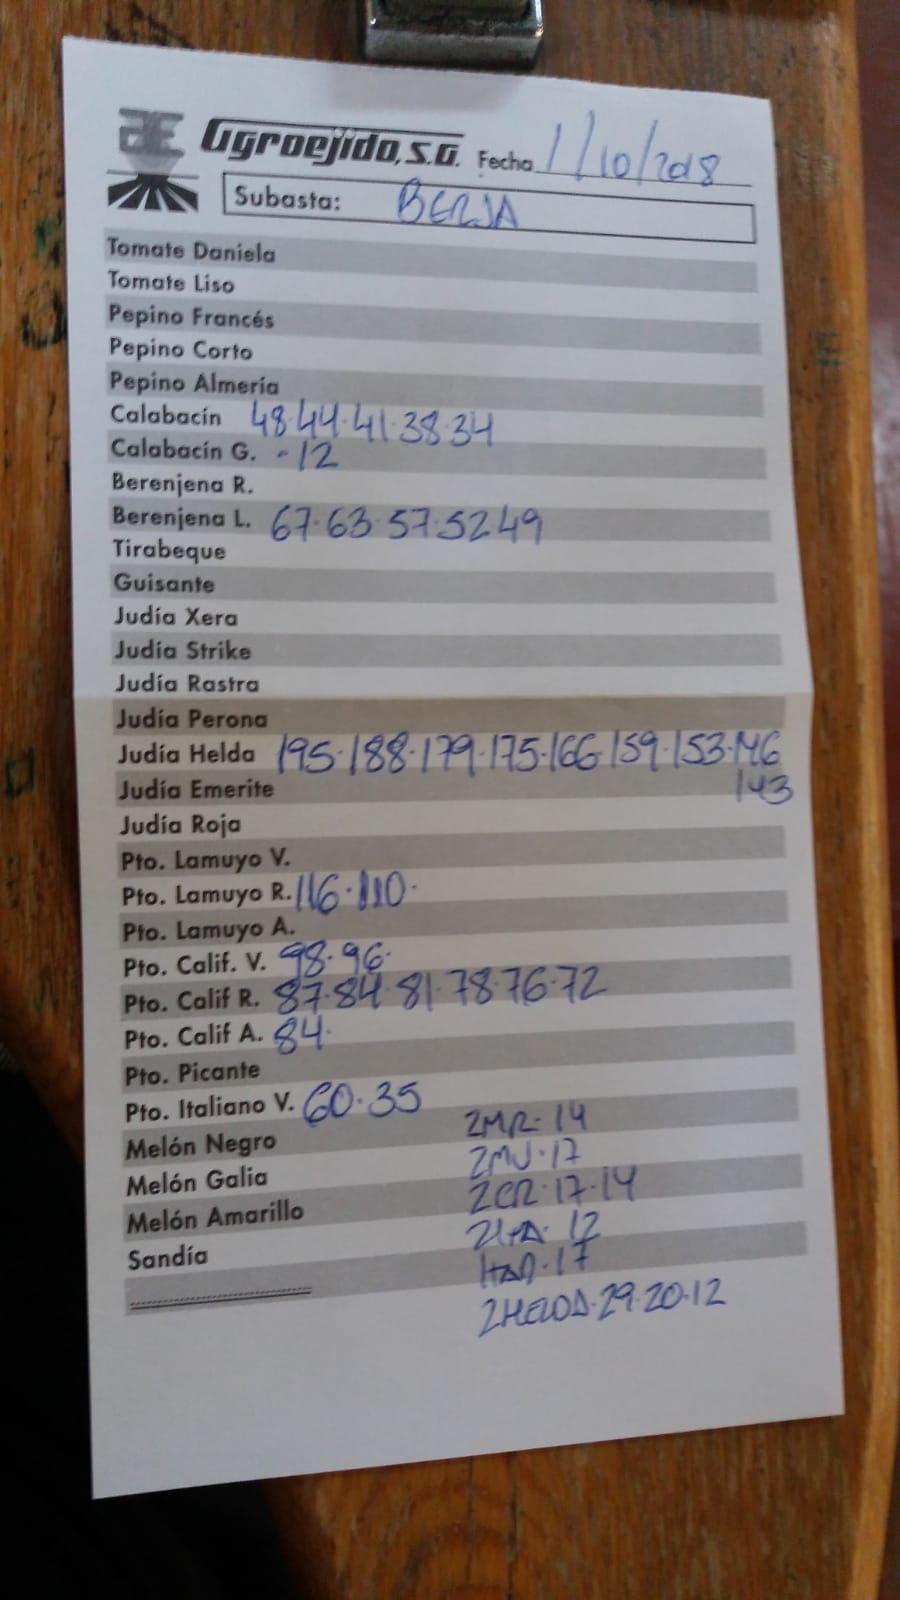 AE Agroejido, S.A. Fecha 1/10/2018
Subasta: BERJA
Tomate Daniela
Tomate Liso
Pepino Francés
Pepino Corto
Pepino Almería
Calabacín 48·44·41·38·34
Calabacín G. -12
Berenjena R.
Berenjena L. 67·63·57·52 49
Tirabeque
Guisante
Judía Xera
Judía Strike
Judía Rastra
Judía Perona
Judía Helda 195·188·179·175·166 159·153·146
Judía Emerite 143
Judía Roja
Pto. Lamuyo V.
Pto. Lamuyo R. 116·110·
Pto. Lamuyo A.
Pto. Calif. V. 98·96·
Pto. Calif R. 87·84·81·78·76·72
Pto. Calif A. 84·
Pto. Picante
Pto. Italiano V. 60·35
Melón Negro 2MR·14
Melón Galia 2MV·17
Melón Amarillo 2CR·17·14
Sandía 12
17
2HELDA·29·20·12